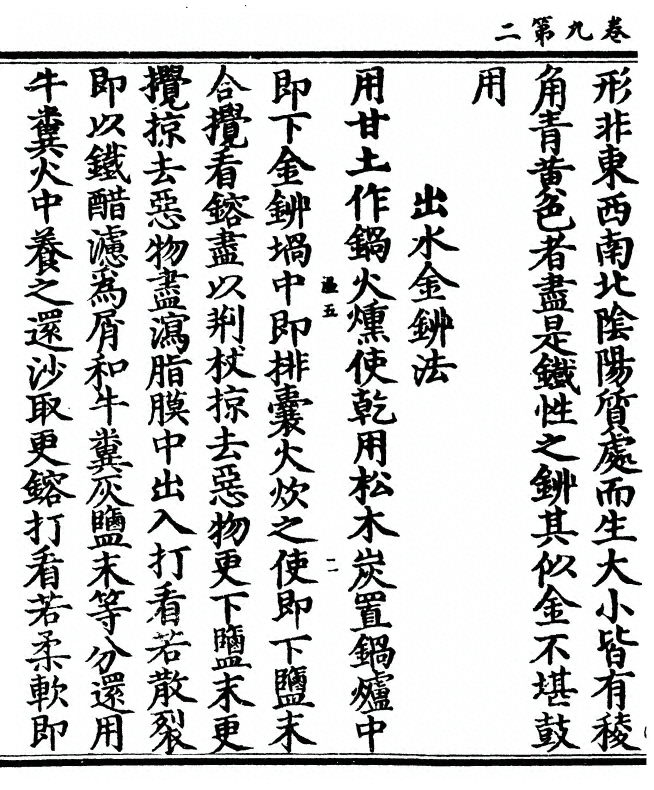 卷九第二
形非東西南北陰陽質處而生大小皆有稜
角青黃色者盡是鐵性之鉚其似金不堪鼓
用
出水金鉚法
用甘土作鍋火燻使乾用松木炭置鍋爐中
溫五
即下金鉚堝中即排囊火炊之使即下鹽末
二
合攪看鎔盡以荆杖掠去惡物更下鹽末更
攪掠去惡物盡瀉脂膜中出入打看若散裂
即以鐵醋濾為屑和牛糞灰鹽末等分還用
牛糞火中養之還沙取更鎔打看若柔軟即